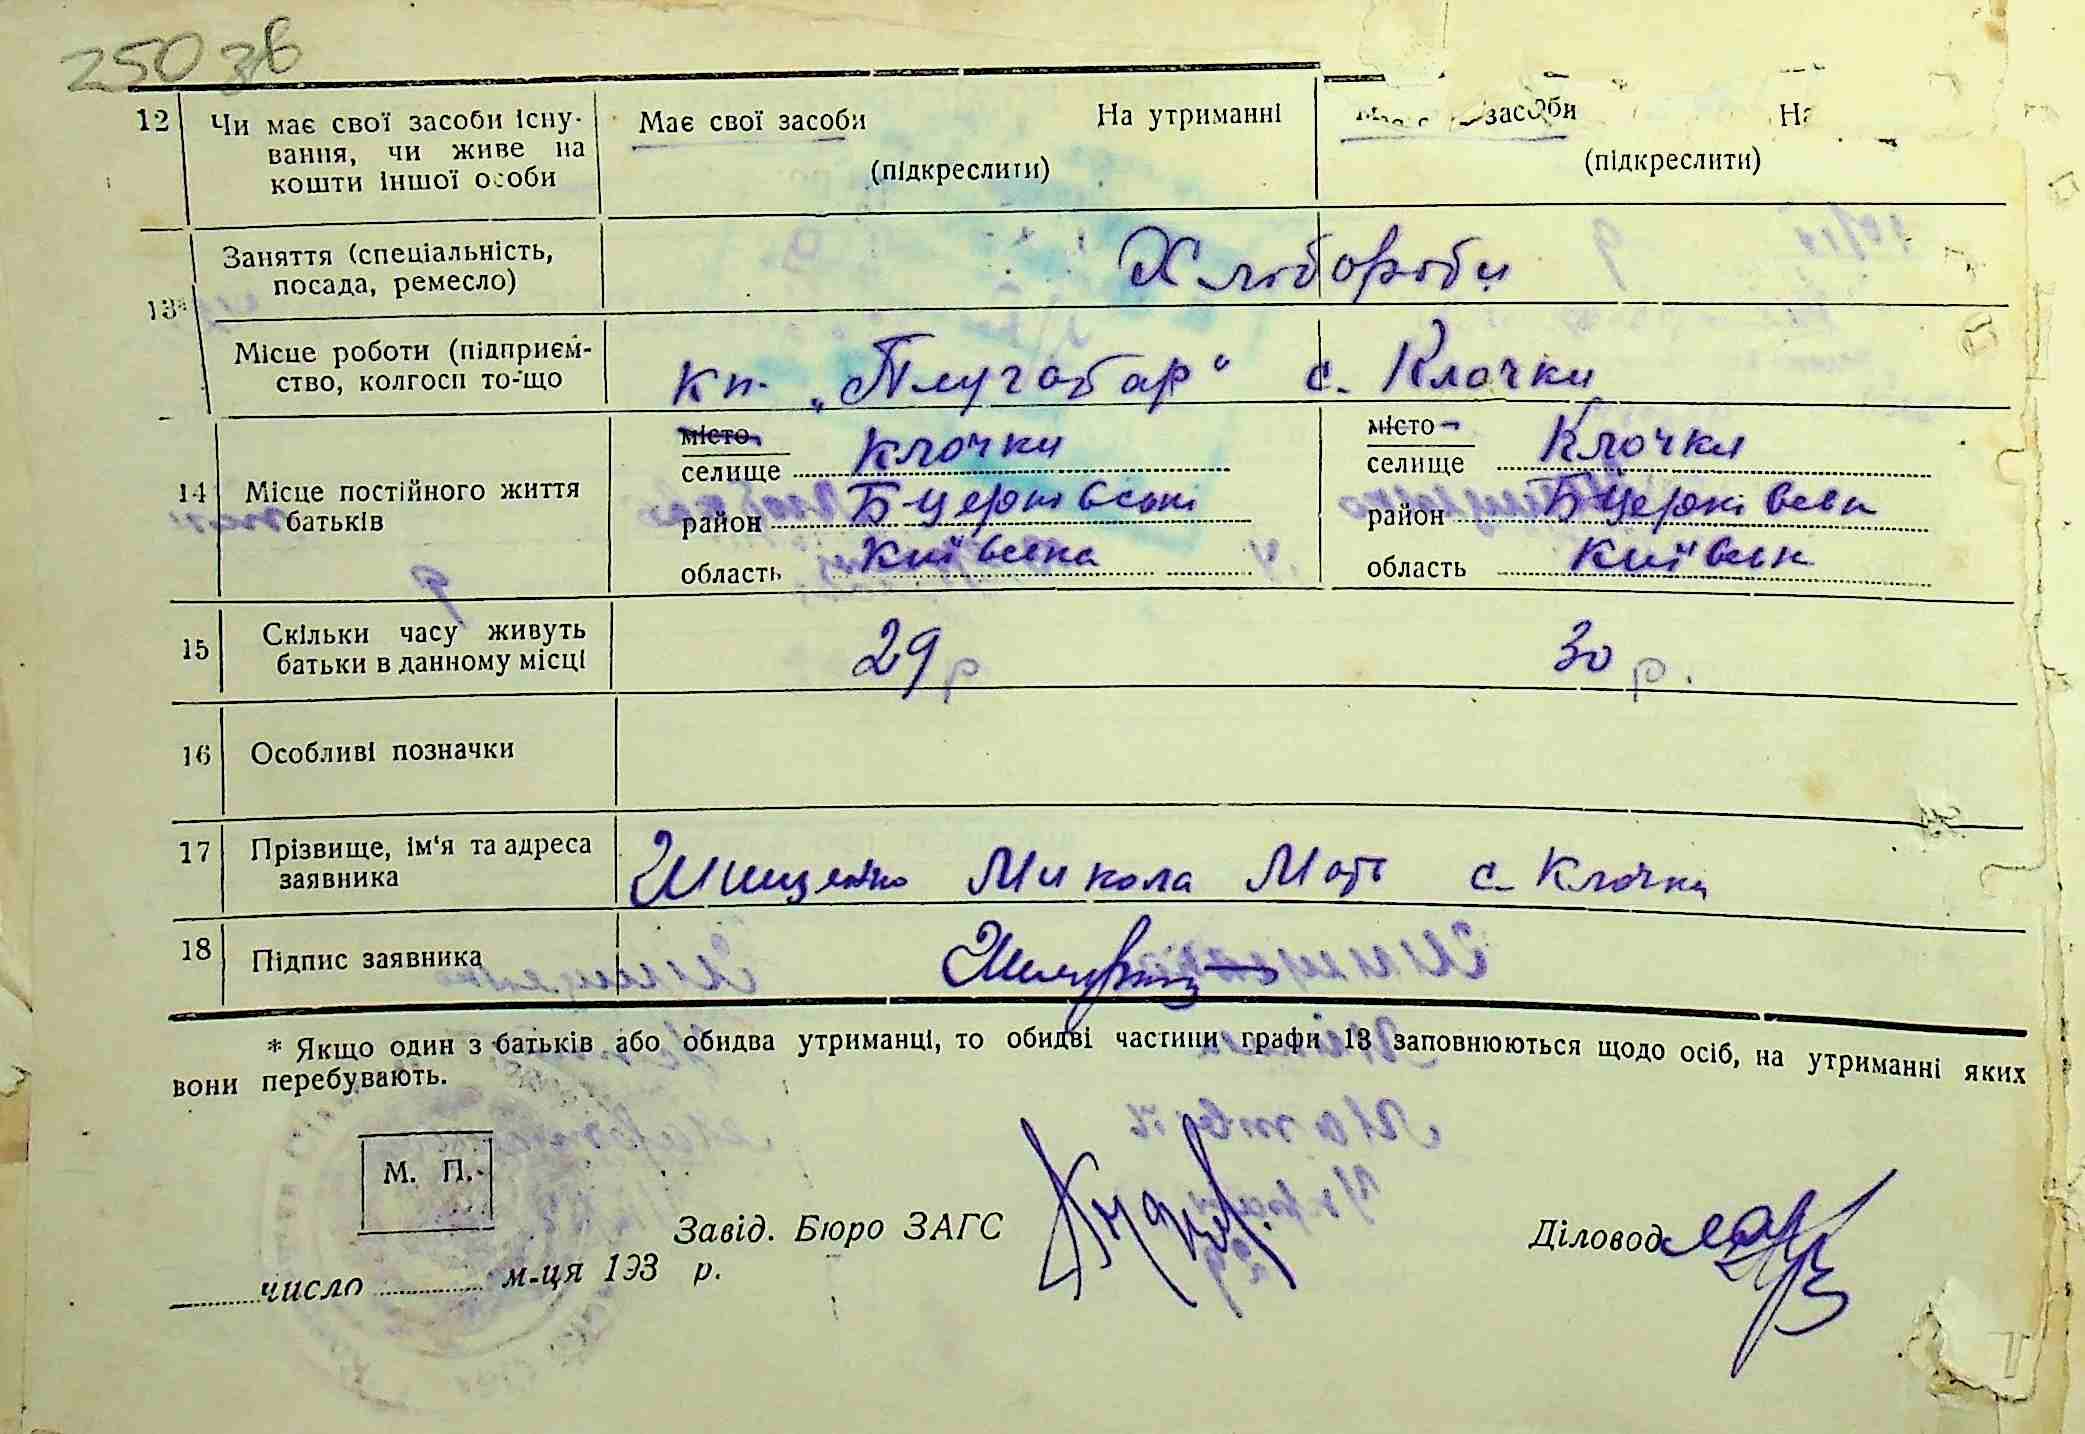 250 зв
12 Чи має свої засоби існу-
вання, чи живе на
кошти іншої особи
Має свої засоби На утриманні
(підкреслити)
засоби На
(підкреслити)
13* Заняття (спеціальність,
посада, ремесло)
Хлібороби
Місце роботи (підприєм-
ство, колгосп то-що
Кп. „Плугатар" с. Клочки
14 Місце постійного життя
батьків
місто
селище Клочки
район Б-Церківськ
область Київська
місто
селище Клочки
район Б Церківськ
область Київськ
15 Скільки часу живуть
батьки в данному місці
29 р 30 р.
16 Особливі позначки
17 Прізвище, ім'я та адреса
заявника
Шищенко Микола Мат с. Клочки
18 Підпис заявника
* Якщо один з батьків або обидва утриманці, то обидві частини графи 13 заповнюються щодо осіб, на утриманні яких
вони перебувають.
М. П.
Завід. Бюро ЗАГС
Діловод
число м-ця 193 р.